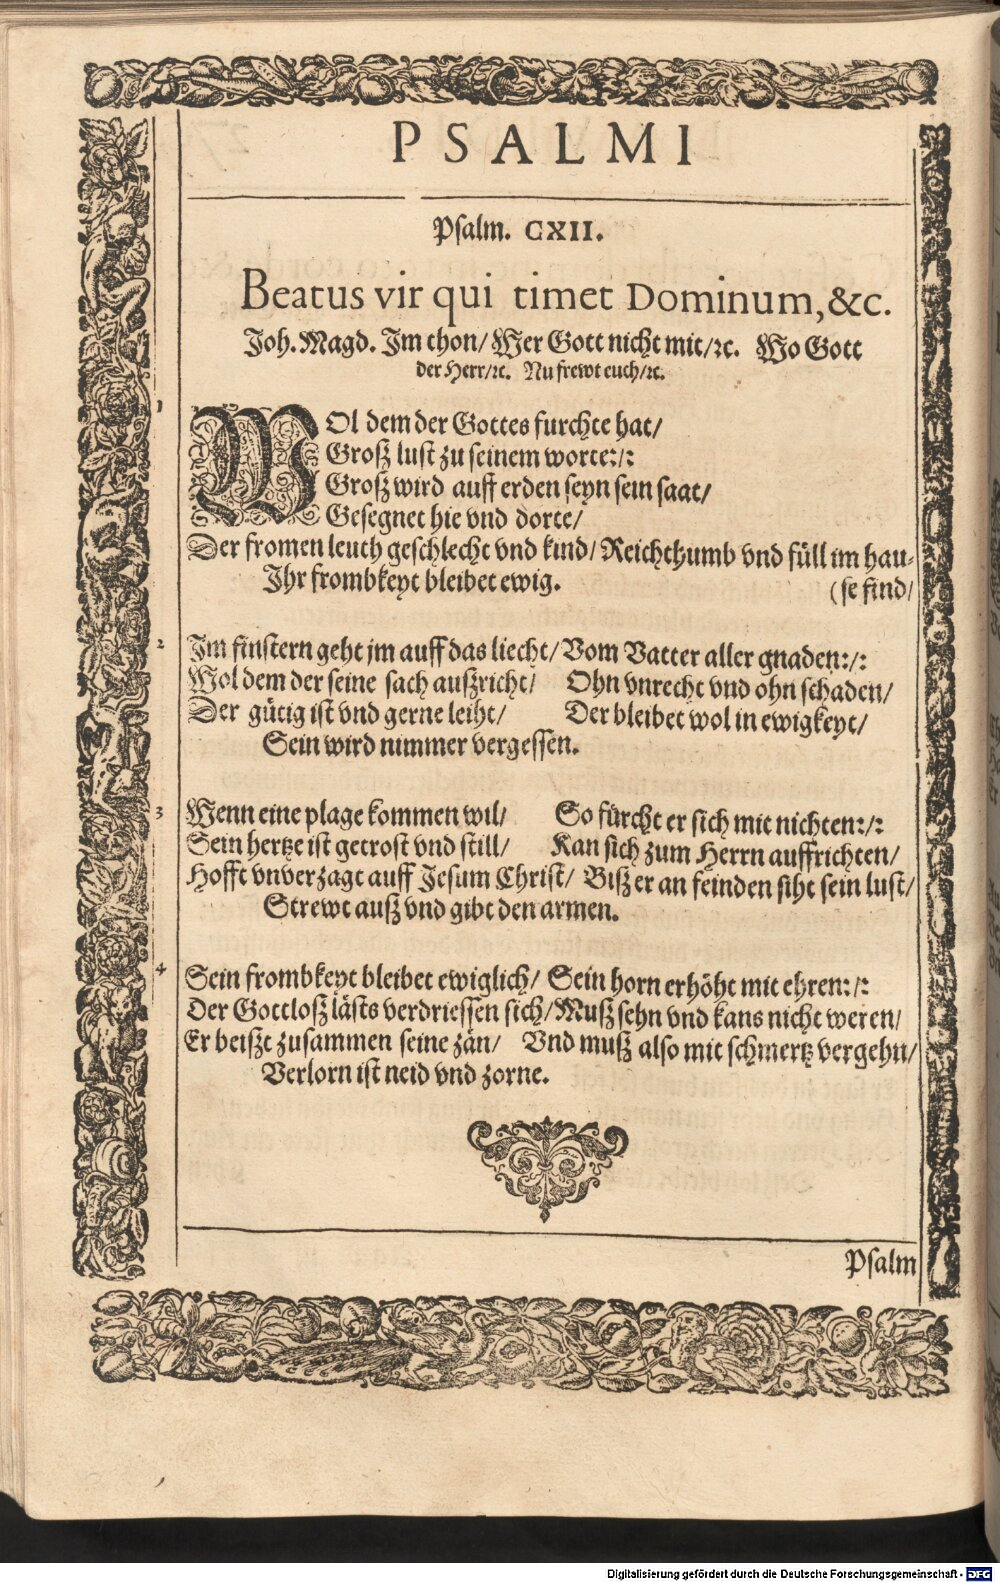 PSALMI
Psalm. CXII.
Beatus vir qui timet Dominum, &c.
Joh. Magd. Im thon/ Wer Gott nicht mit/ꝛc. Wo Gott
der Herr/ꝛc. Nu frewt euch/ꝛc.
1 WOl dem der Gottes furchte hat/
Groß lust zu seinem worte:/:
Groß wird auff erden seyn sein saat/
Gesegnet hie vnd dorte/
Der fromen leuth geschlecht vnd kind/ Reichthumb vnd füll im hau-
Ihr frombkeyt bleibet ewig. (se find/
2 Im finstern geht jm auff das liecht/ Vom Vatter aller gnaden:/:
Wol dem der seine sach außricht/ Ohn vnrecht vnd ohn schaden/
Der gütig ist vnd gerne leiht/ Der bleibet wol in ewigkeyt/
Sein wird nimmer vergessen.
3 Wenn eine plage kommen wil/ So fürcht er sich mit nichten:/:
Sein hertze ist getrost vnd still/ Kan sich zum Herrn auffrichten/
Hofft vnverzagt auff Jesum Christ/ Biß er an feinden siht sein lust/
Strewt auß vnd gibt den armen.
4 Sein frombkeyt bleibet ewiglich/ Sein horn erhöht mit ehren:/:
Der Gottloß lästs verdriessen sich/ Muß sehn vnd kans nicht weren/
Er beißt zusammen seine zän/ Vnd muß also mit schmertz vergehn/
Verlorn ist neid vnd zorne.
Psalm
Digitalisierung gefördert durch die Deutsche Forschungsgemeinschaft - DFG